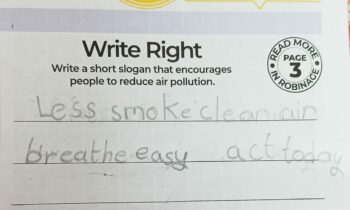 Write Right
Write a short slogan that encourages
people to reduce air pollution.
READ MORE
PAGE
3
IN ROBINAGE
Less smoke clean air
breathe easy act today